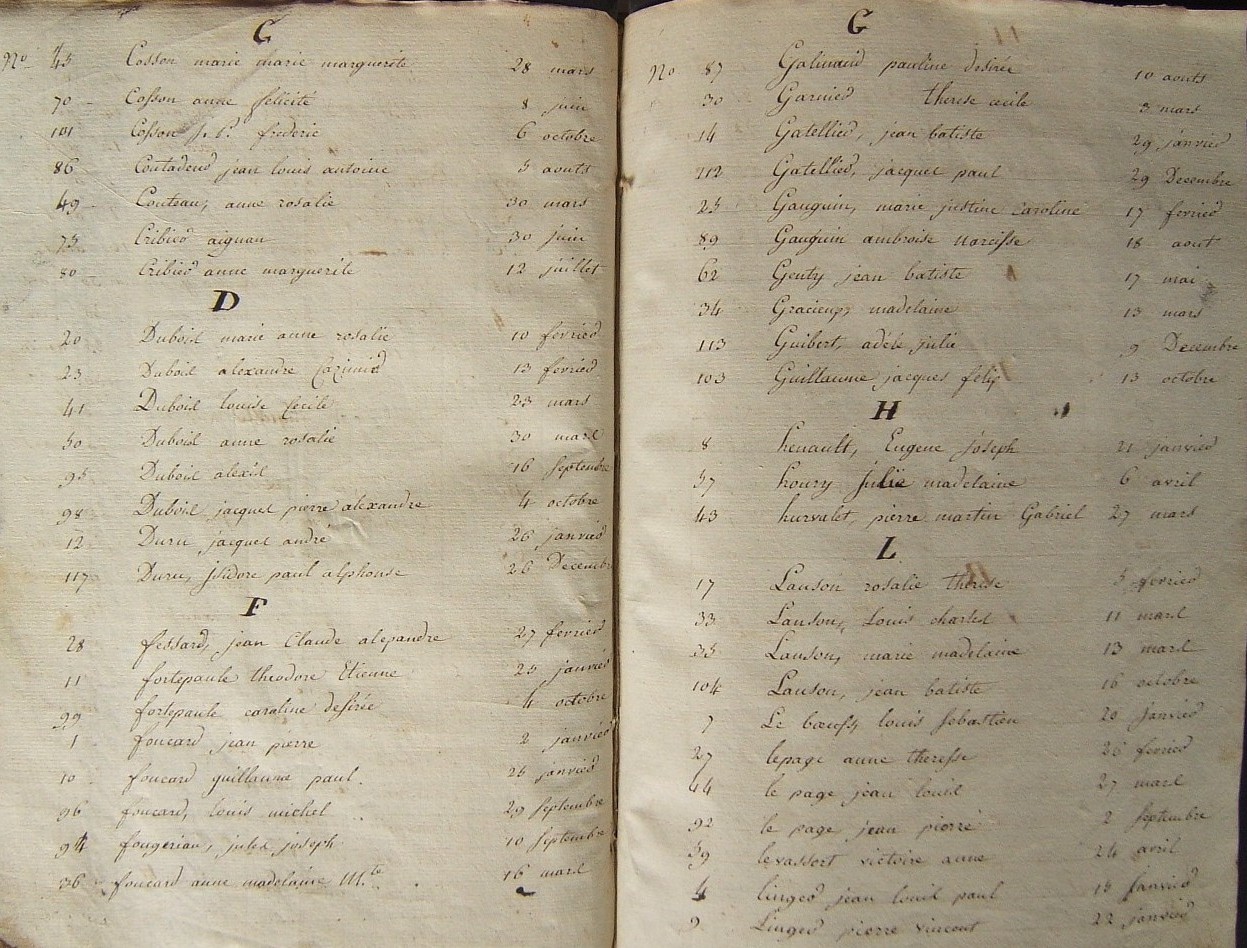 C
No 45 Cosson marie marie marguerite 28 mars
70 Cosson anne felicité 8 juin
101 Cosson j. b. frederic 6 octobre
86 jean louis antoine 5 aouts
49 Couteau, anne rosalie 30 mars
75 Cribier aignan 30 juin
80 Cribier anne marguerite 12 juillet
D
20 Dubois marie anne rosalie 10 fevrier
23 Dubois alexandre Cazimir 13 fevrier
41 Dubois louise Cecile 23 mars
50 Dubois anne rosalie 30 mars
95 Dubois alexis 16 septembre
98 Dubois jacques pierre alexandre 4 octobre
12 Duru jacques andré 26 janvier
117 Duru, isidore paul alphonse 26 Decembre
F
28 fessard, jean Claude alexandre 27 fevrier
11 fortepaule theodore Etienne 25 janvier
99 fortepaule caroline desirée 4 octobre
1 foucard jean pierre 2 janvier
10 foucard guillaume paul 25 janvier
96 foucard, louis michel 29 septembre
94 jules joseph 10 septembre
36 foucard anne madelaine M.te 16 mars
G
No 87 Galinaud pauline desirée 10 aouts
30 Garnier therese cecile 3 mars
14 Gatellier, jean batiste 29 janvier
112 Gatellier, jacques paul 29 Decembre
25 Gauguin, marie justine Caroline 17 fevrier
89 Gauguin ambroise Narcisse 18 aout
62 Genty jean batiste 17 mai
34 Gracieux madelaine 13 mars
113 Guibert, adéle julie 9 Decembre
103 Guillaume jacques felix 13 octobre
H
8 henault, Eugene joseph 21 janvier
57 houry julie madelaine 6 avril
43 hurvalet, pierre martin Gabriel 27 mars
L
17 Lanson rosalie therese 5 fevrier
33 Lanson, Louis charles 11 mars
35 Lanson, marie madelaine 13 mars
104 Lanson, jean batiste 16 octobre
7 Le bœuf, louis sebastien 20 janvier
27 lepage anne theresse 26 fevrier
44 le page jean louis 27 mars
92 le page jean pierre 2 septembre
59 levassort victoire anne 24 avril
4 linger jean louis paul 15 janvier
9 Linger pierre vincent 22 janvier